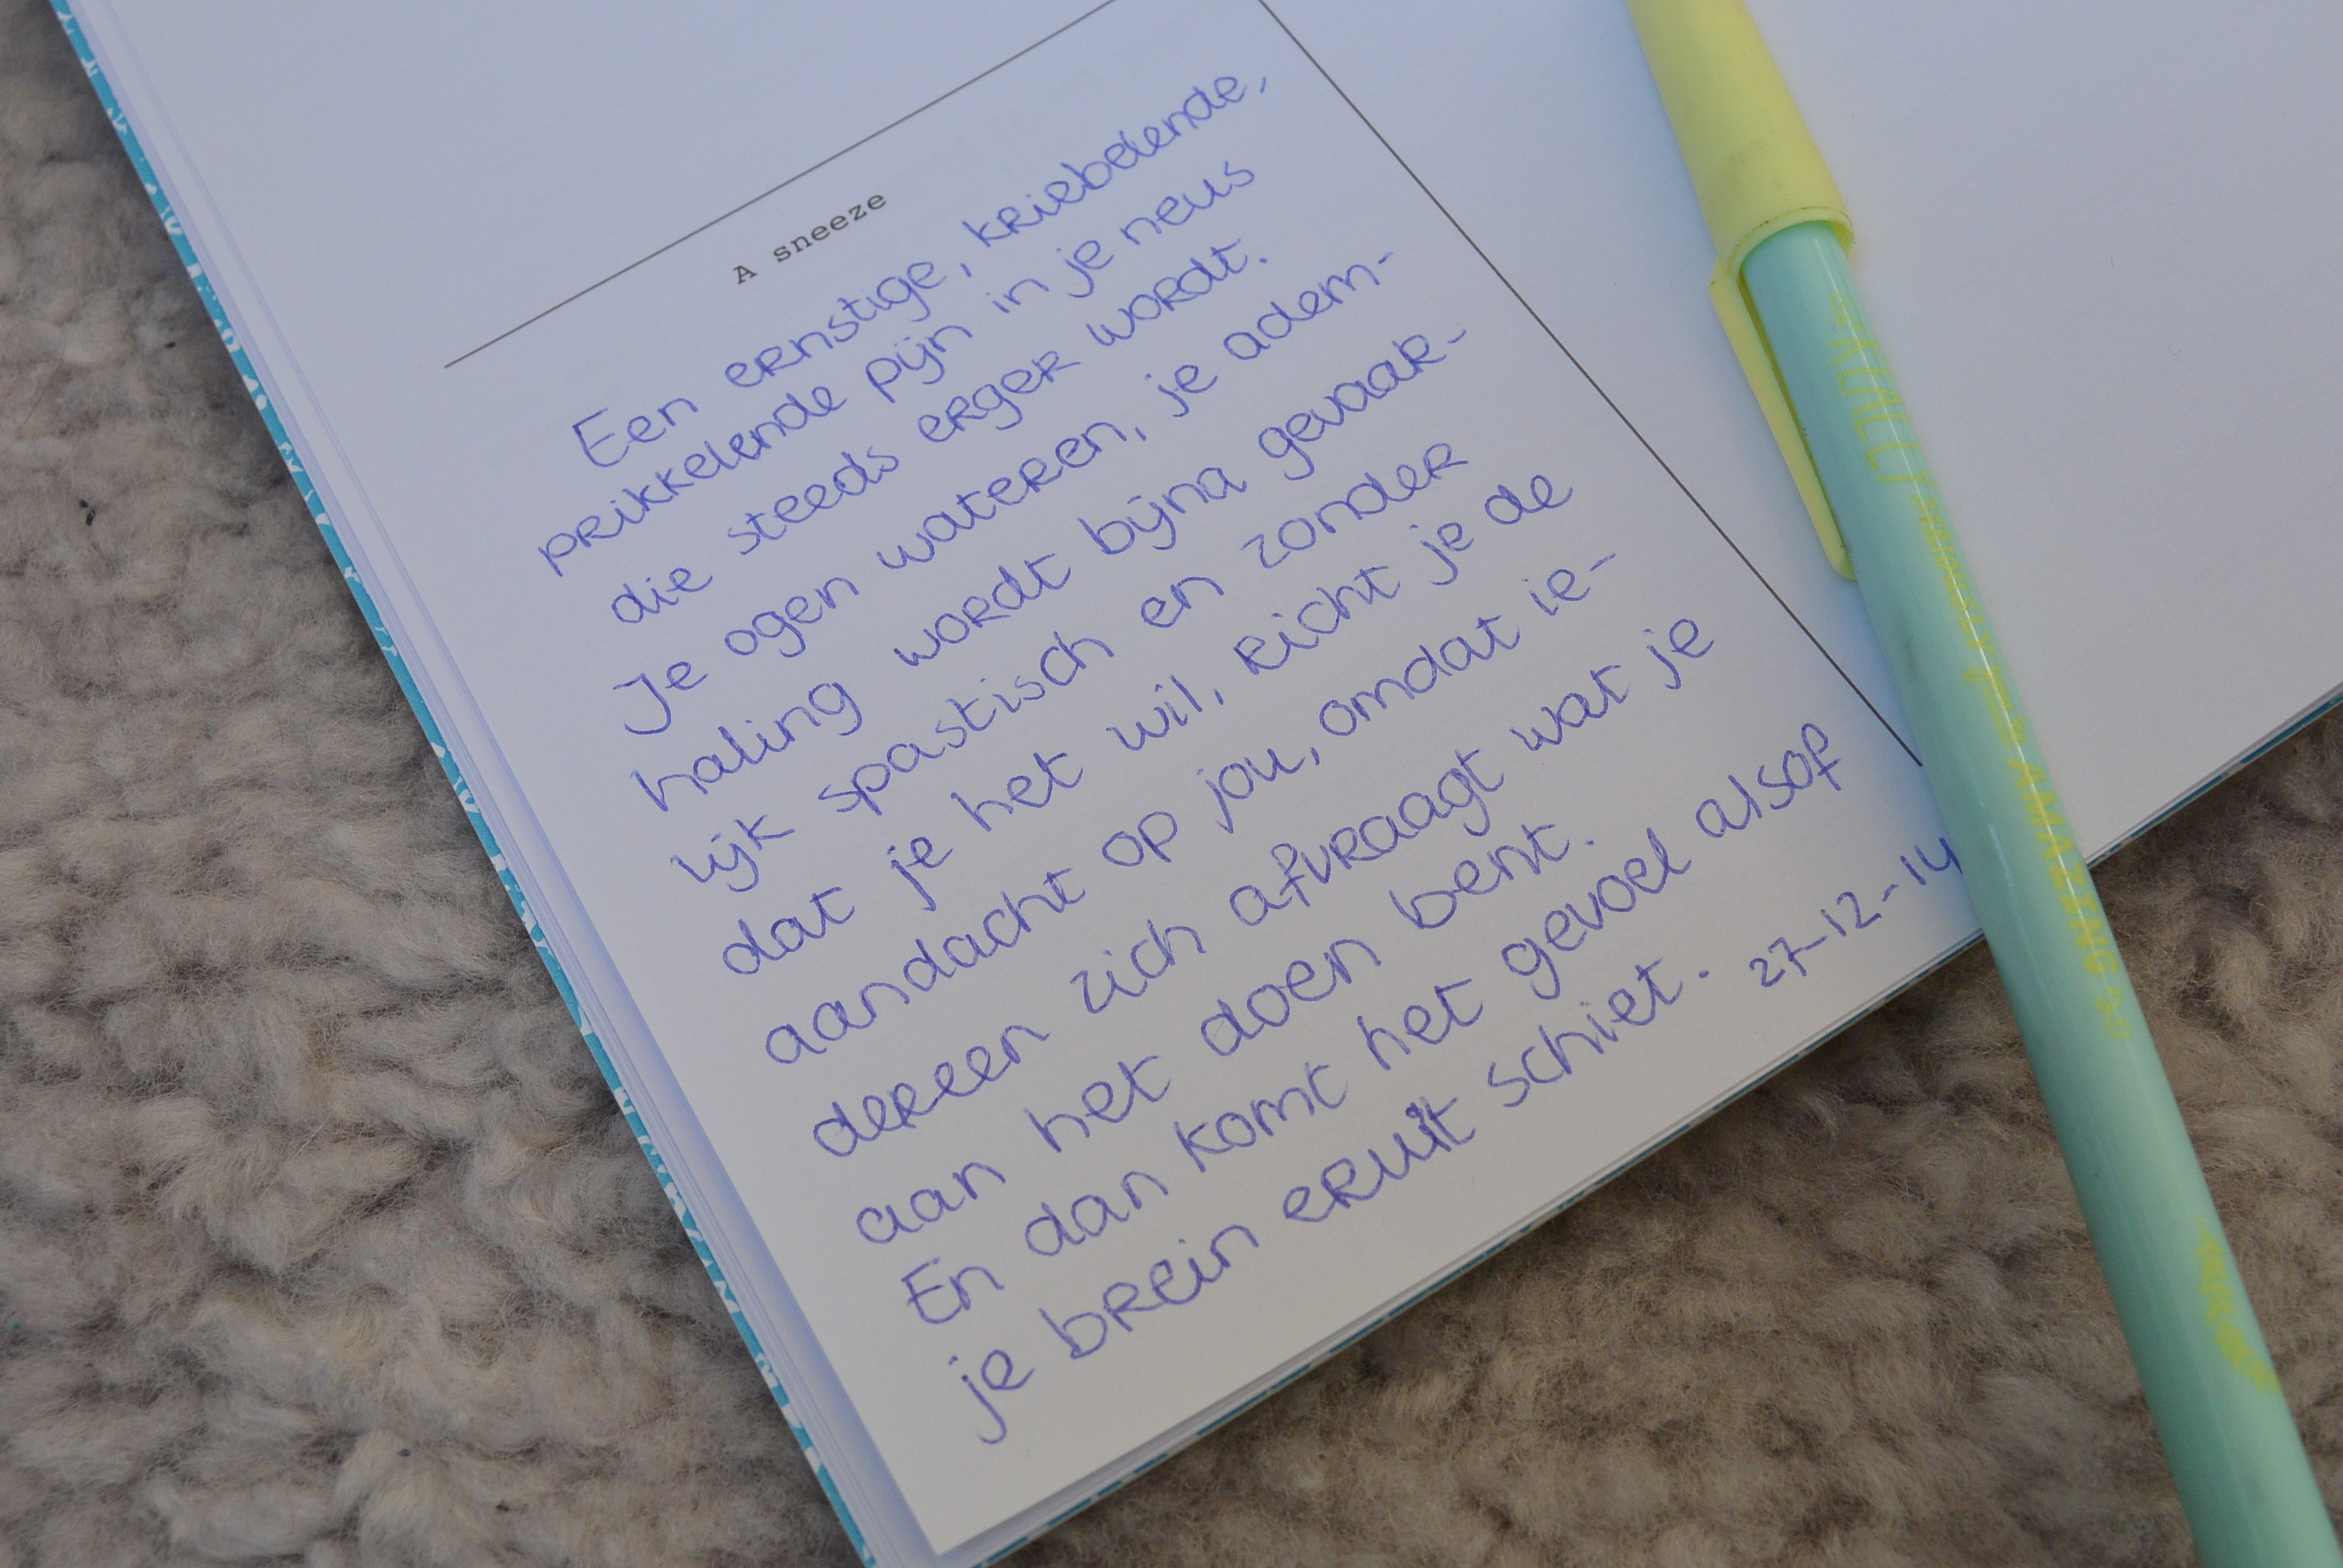 A sneeze
Een ernstige, kriebelende,
prikkelende pijn in je neus
die steeds erger wordt.
Je ogen wateren, je adem-
haling wordt bijna gevaar-
lijk spastisch en zonder
dat je het wil, richt je de
aandacht op jou, omdat ie-
dereen zich afvraagt wat je
aan het doen bent.
En dan komt het gevoel alsof
je brein eruit schiet.
27-12-14